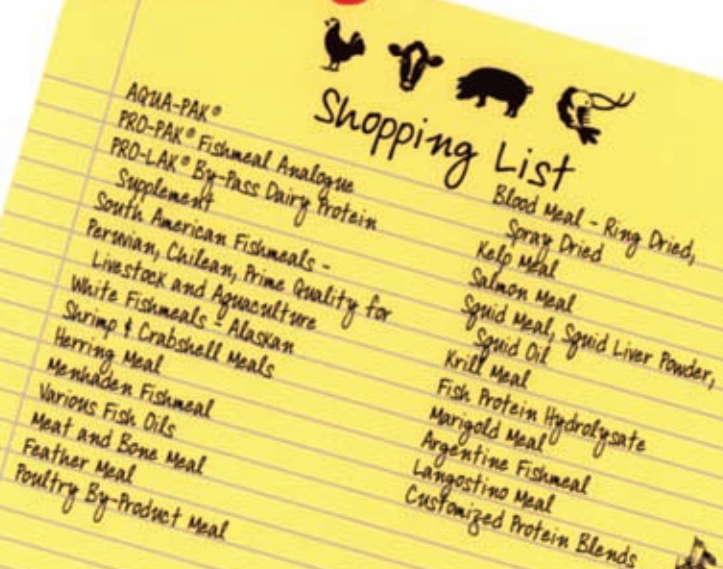 Shopping List
AQUA-PAK®
PRO-PAK® Fishmeal Analogue
PRO-LAK® By-Pass Dairy Protein
Supplement
South American Fishmeals -
Peruvian, Chilean, Prime Quality for
Livestock and Aquaculture
White Fishmeals - Alaskan
Shrimp & Crabshell Meals
Herring Meal
Menhaden Fishmeal
Various Fish Oils
Meat and Bone Meal
Feather Meal
Poultry By-Product Meal
Blood Meal - Ring Dried,
Spray Dried
Kelp Meal
Salmon Meal
Squid Meal, Squid Liver Powder,
Squid Oil
Krill Meal
Fish Protein Hydrolysate
Marigold Meal
Argentine Fishmeal
Langostino Meal
Customized Protein Blends